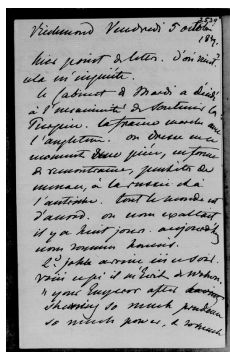 Richmond Vendredi 5 octobre
184
hier point de lettre. D'où vient
cela m'inquiète.
le Cabinet de Mardi a décidé
à l'unanimité de soutenir la
Turquie. la france marche avec
l'angleterre. on dresse en ce
moment deux pièces, en forme
de remontrance, de
menace, à la russie et à
l'autriche. tout le monde est
d'accord. on nous exaltait
il y a huit jours. aujourd'hui
nous sommes honnis.
Ld John arrive ce soir.
voici ce qu'il m'écrit de Woburn
"your Emperor after
shewing so much prudence
so much power, & so much